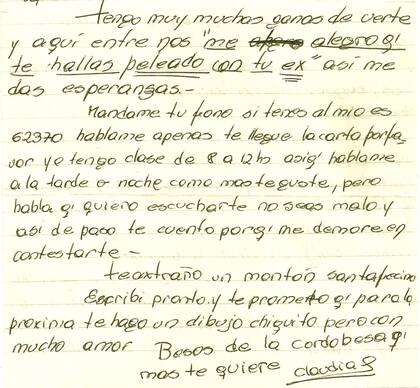 Tengo muy muchas ganas de verte
y aquí entre nos "me alegro qi
te hallas peleado con tu ex" así me
das esperanzas.-
Mandame tu fono si tenes al mio es
62370 hablame apenas te llegue la carta porfa
vor yo tengo clase de 8 a 12hs asiqi hablame
a la tarde o noche como mas te guste, pero
habla qi quiero escucharte no seas malo y
así de paso te cuento porqi me demore en
contestarte.-
te extraño un montón santafecino
Escribi pronto y te prometo qi para la
proxima te hago un dibujo chiquito pero con
mucho amor Besos de la cordobesa qi
mas te quiere Claudia